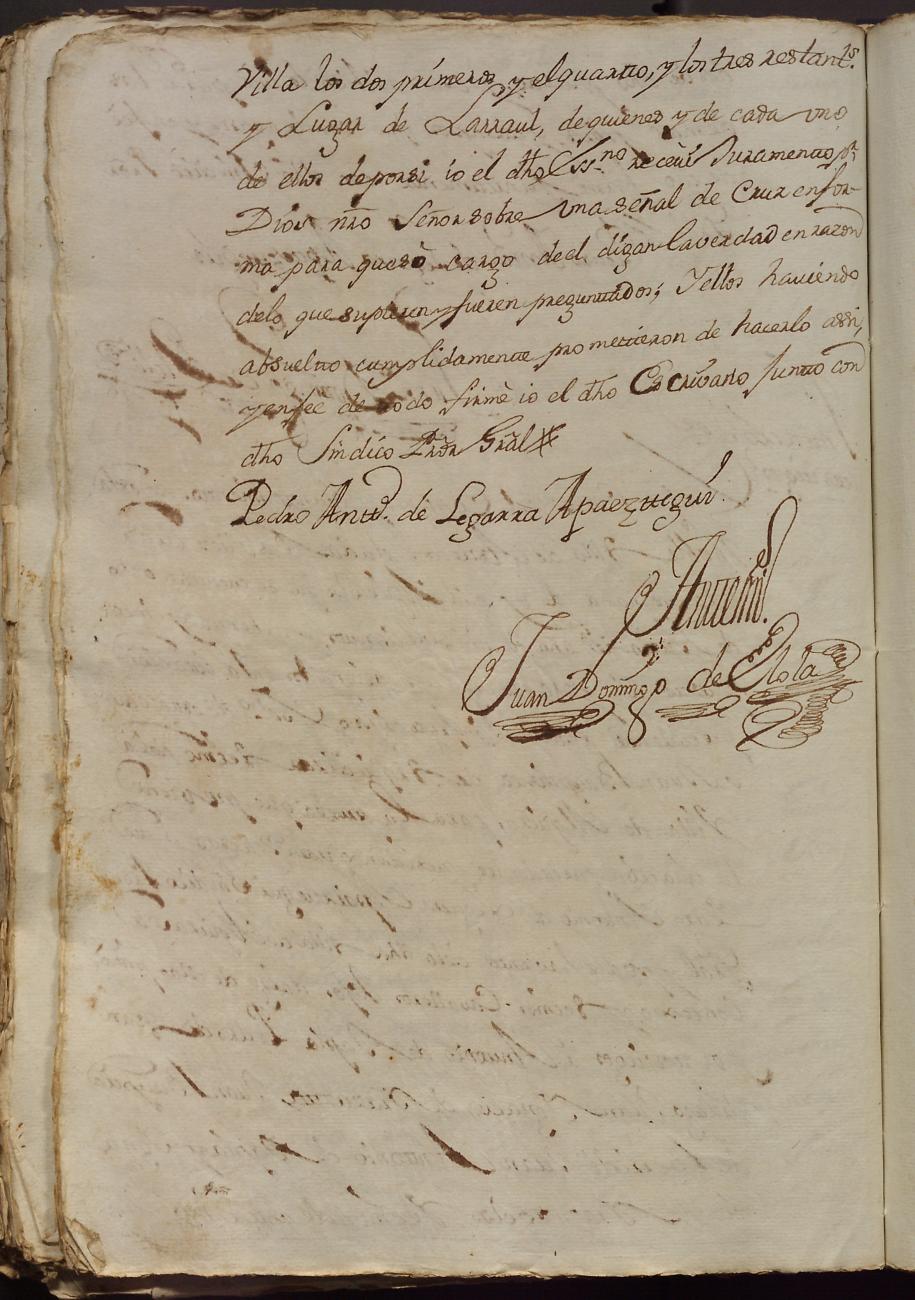 Villa los dos primeros y el quarto, y los tres restant.ˢ
y Lugar de Larraul, de quienes y de cada uno
de ellos de porsi io el dho Ess.ⁿᵒ receuí Juramento p.ʳ
Dios nro Señor sobre una señal de Cruz en for-
ma para que só cargo de el digan la verdad en razon
delo que supieren y fueren preguntados; Y ellos haviendo
absuelto cumplidamente prometieron de hacerlo assi,
y enfeé de todo firmè io el dho Escrivano Junto con
dho Sindico Prōr Grāl
Pedro Antt.º de Legarra Apaeztegui
Antemi
Juan Domingo de Olola